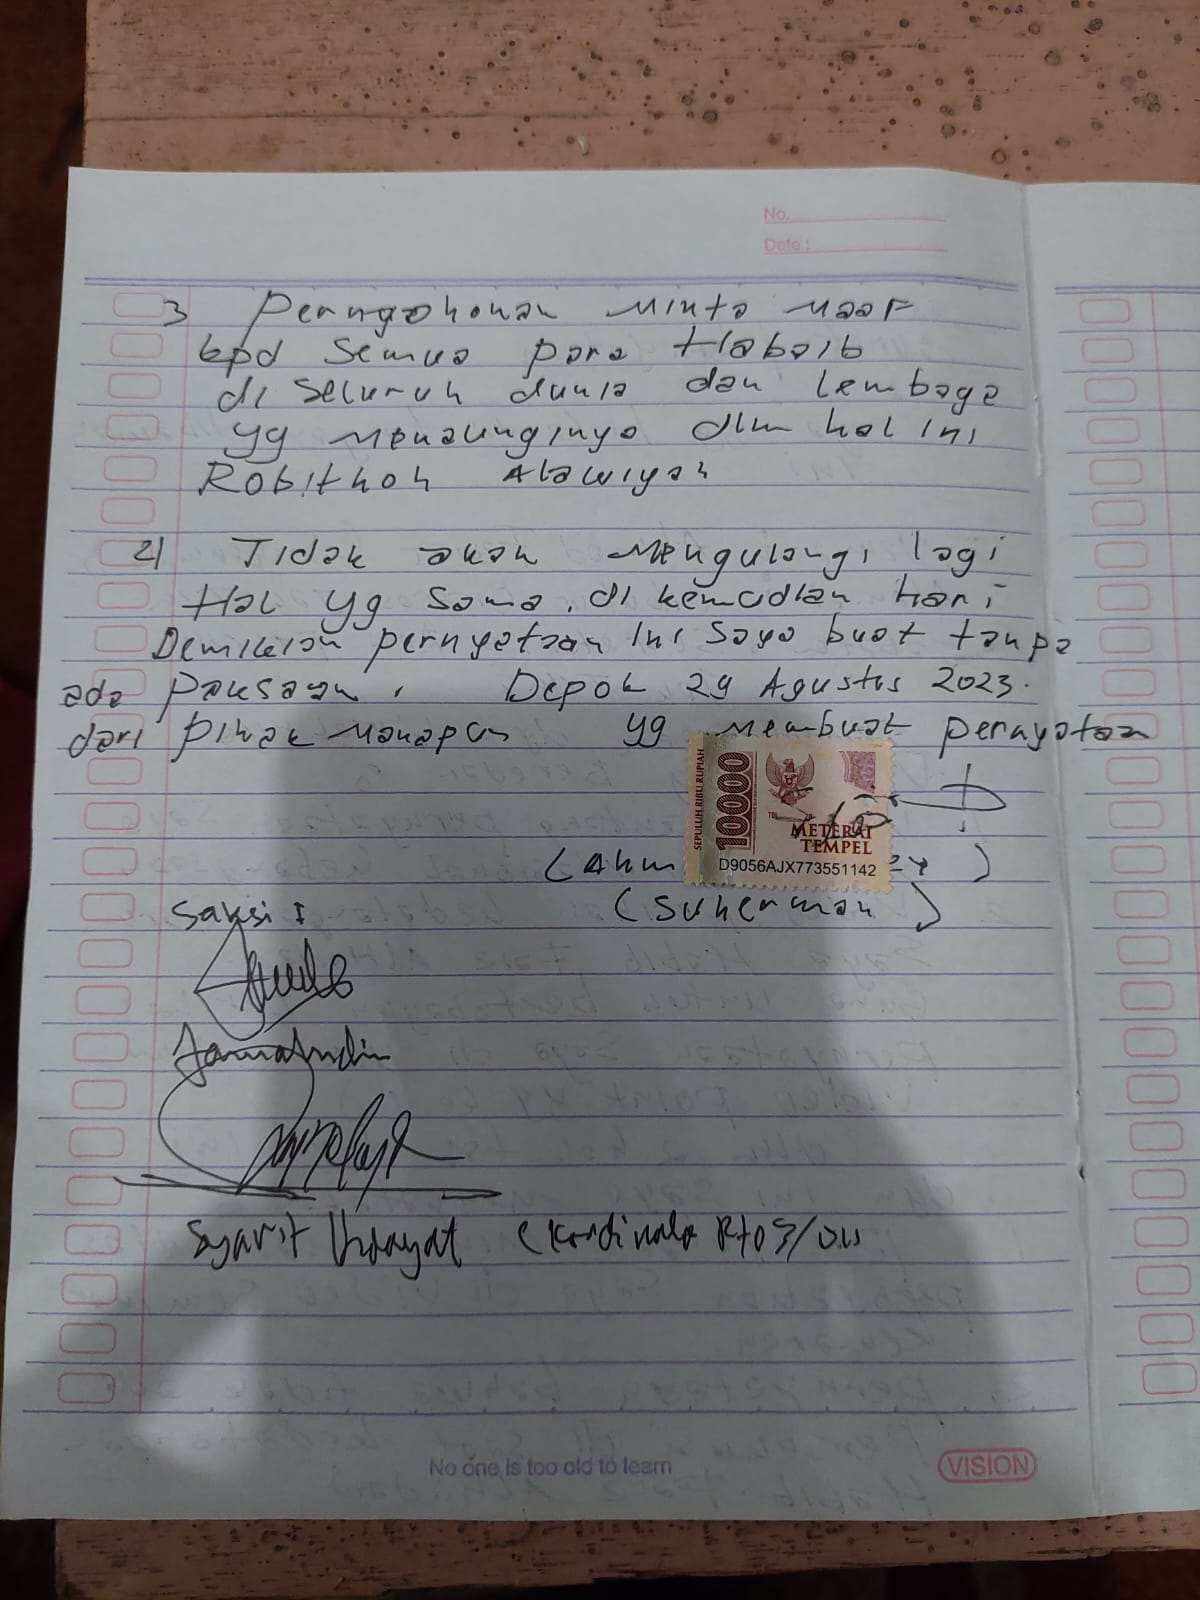 No.
Date :
3 Permgohonan minta maaf
kpd semua para Habaib
di seluruh dunia dan lembaga
yg menaunginya dlm hal ini
Robithoh Alawiyah
2) Tidak akan mengulangi lagi
Hal yg sama, di kemudian hari
Demikian pernyataan ini saya buat tanpa
ada paksaan, Depok 29 Agustus 2023.
dari pihak manapun yg membuat pernyataan
SEPULUH RIBU RUPIAH
10000
METERAI
TEMPEL
D9056AJX773551142
(Suherman)
Saksi I
Jamaludin
Syarif Hidayat
No one is too old to learn
VISION